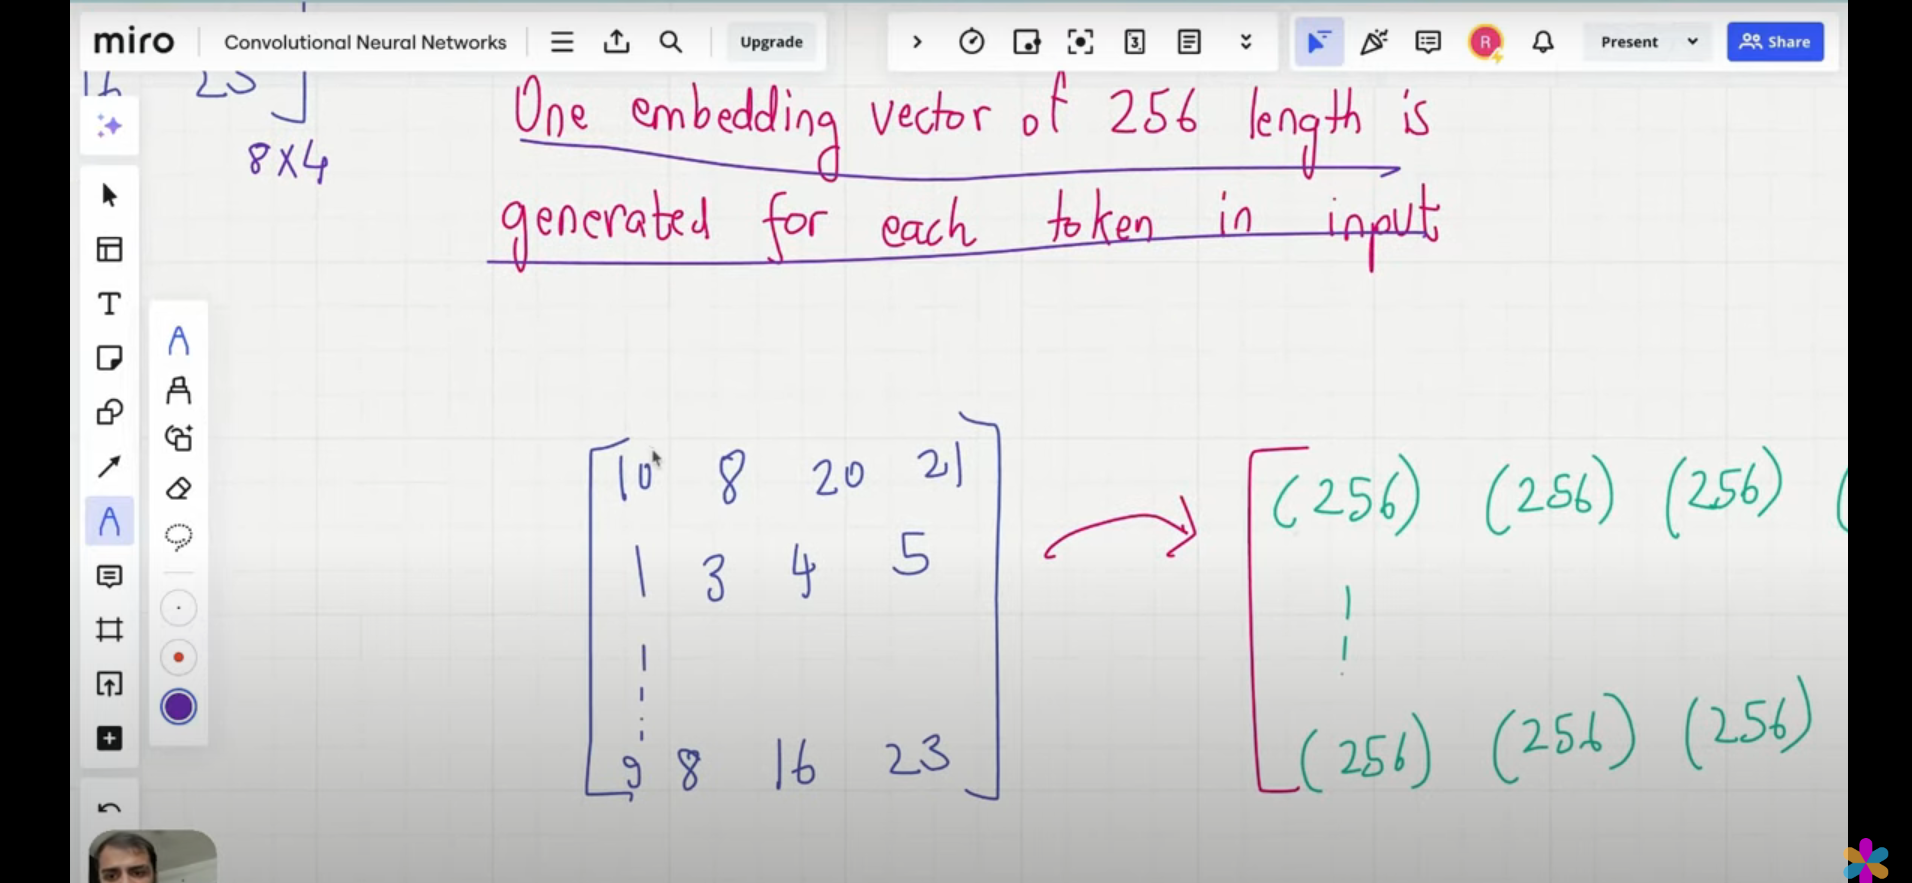 miro
Convolutional Neural Networks
Upgrade
3
R
Present
Share
16 23
8X4
One embedding vector of 256 length is
generated for each token in input
10 8 20 21
1 3 4 5
9 8 16 23
(256) (256) (256) (
(256) (256) (256)